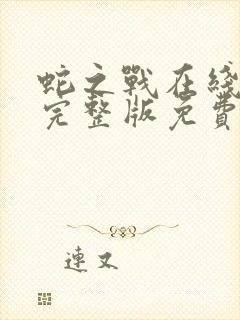 蛇之戰在綫
完整版免費
連又